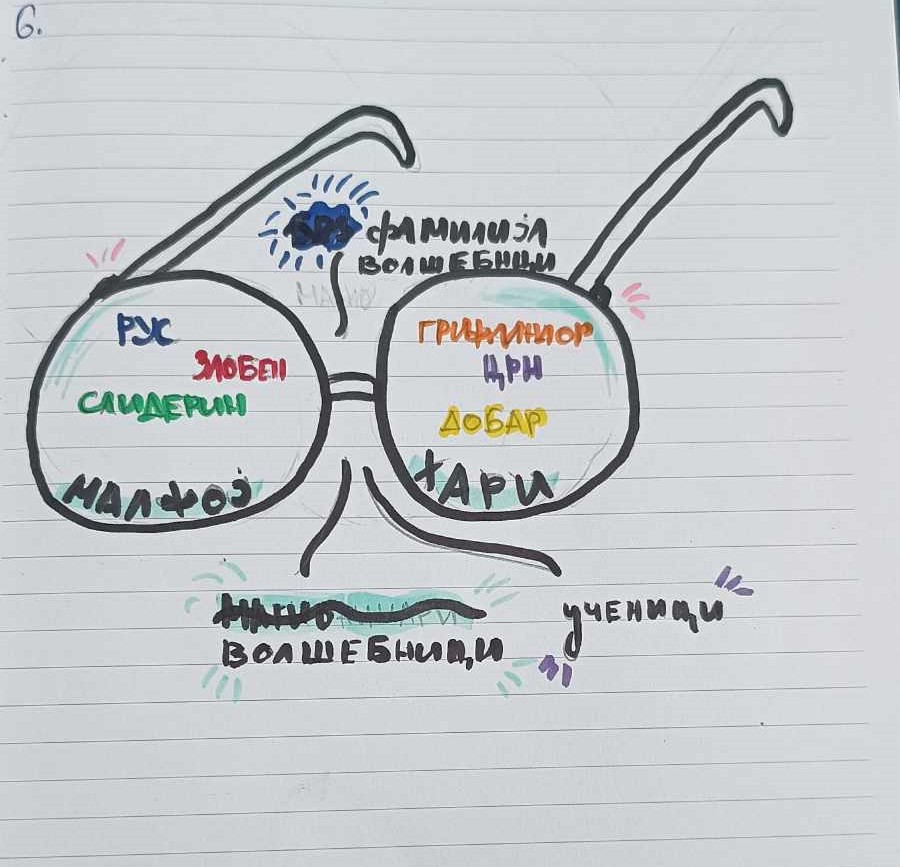 6.
ФАМИЛИЈА
ВОЛШЕБНИЦИ
РУС
ЗЛОБЕН
СЛИДЕРИН
МАЛФОЈ
ГРИФИНДОР
ЦРН
ДОБАР
ХАРИ
ВОЛШЕБНИЦИ
УЧЕНИЦИ